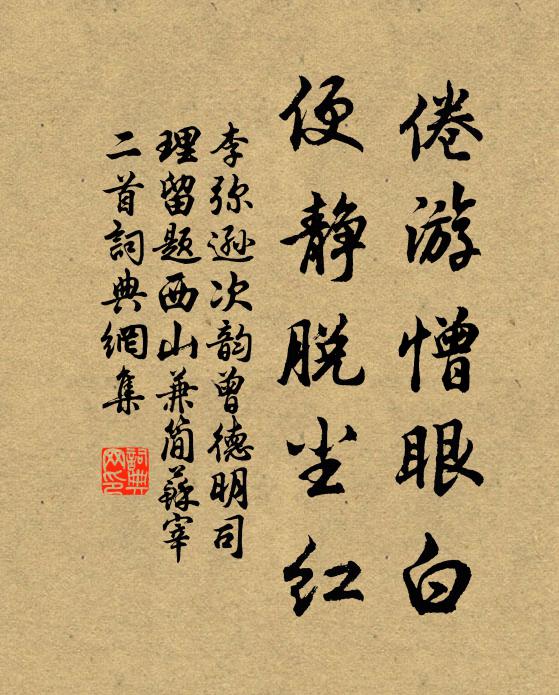 倦游憎眼白
便静脱尘红
李弥逊次韵曾德明司
理留题西山兼简蘇宰
二首詞典網集
詞典网印